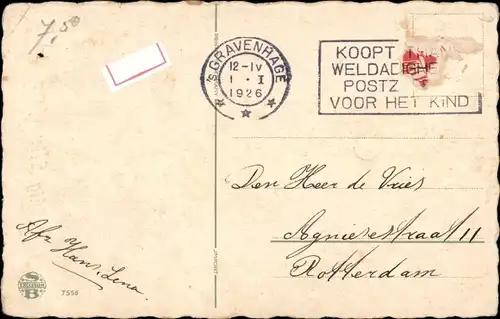 7.50
'S GRAVENHAGE
12-IV
1 · I
1926
KOOPT
WELDADIGHE
POSTZ
VOOR HET KIND
Den Heer de Vries
Agniesestraat 11
Rotterdam
Afz
Hans, Lena.
S
B
7556